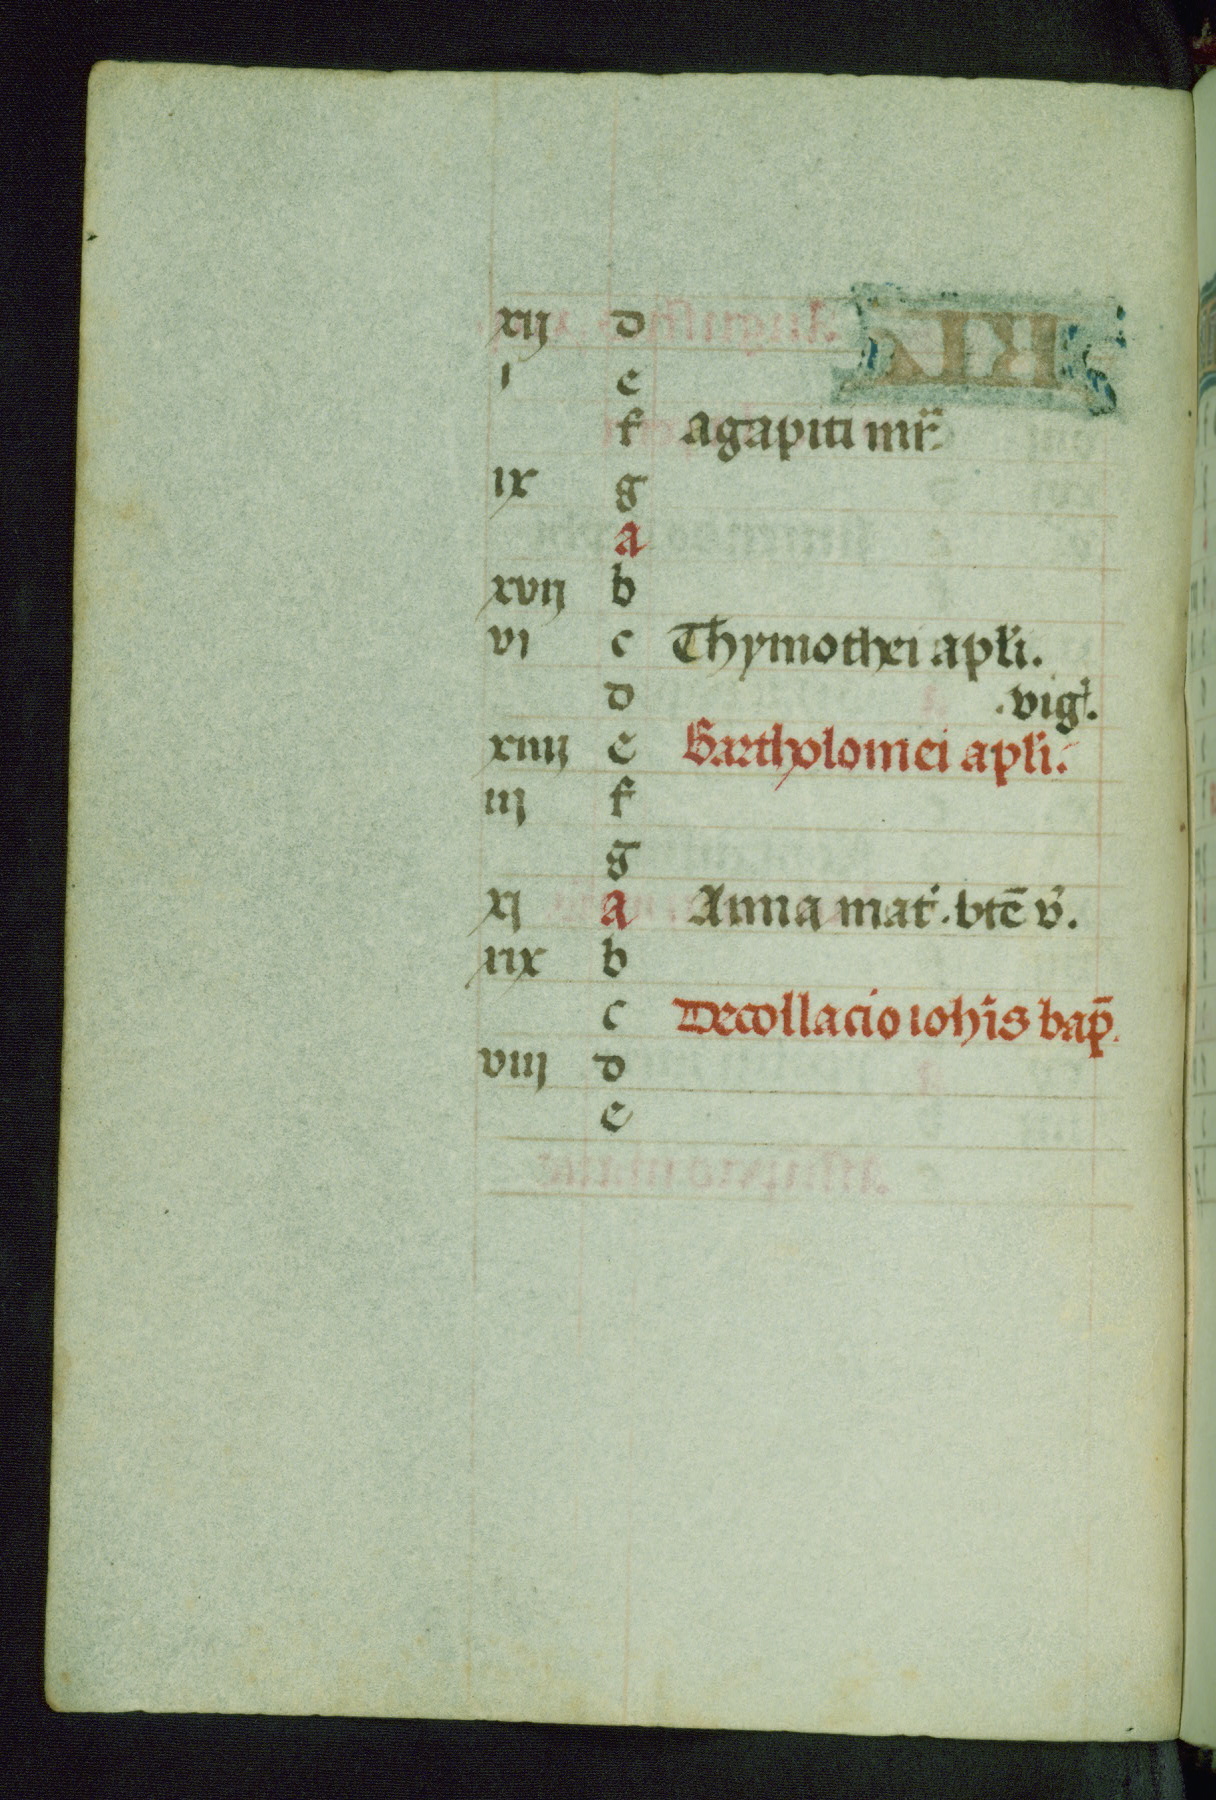 xij d
i e
f Agapiti mr̃
ix g
a
xvij b
vi c Thymothei apl̃i.
d .vigl̃.
xiiij e Bartholomei apl̃i.
iij f
g
xj a Anna mat̃. bt̃e v̄.
xix b
c Decollacio ioh̃is bap̃.
viij d
e